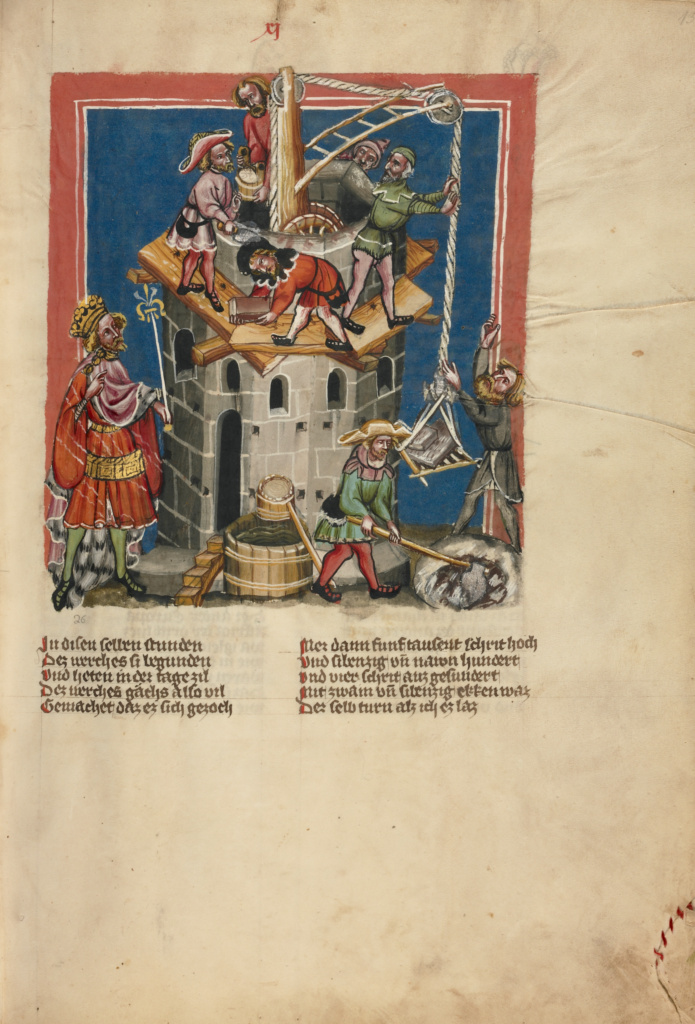 xj
26
In disen selben stunden
Des werches si begunden
Und heten in der tage zil
Des werches gaehs also vil
Gemachet daz er sich gezoch
Mer dann funf tausent schrit hoch
Und sibenzig vn̄ nawn hundert
Und vier schrit auz gesundert
Mit zwain vn̄ sibenzig ekken waz
Der selb turn als ich ez laz